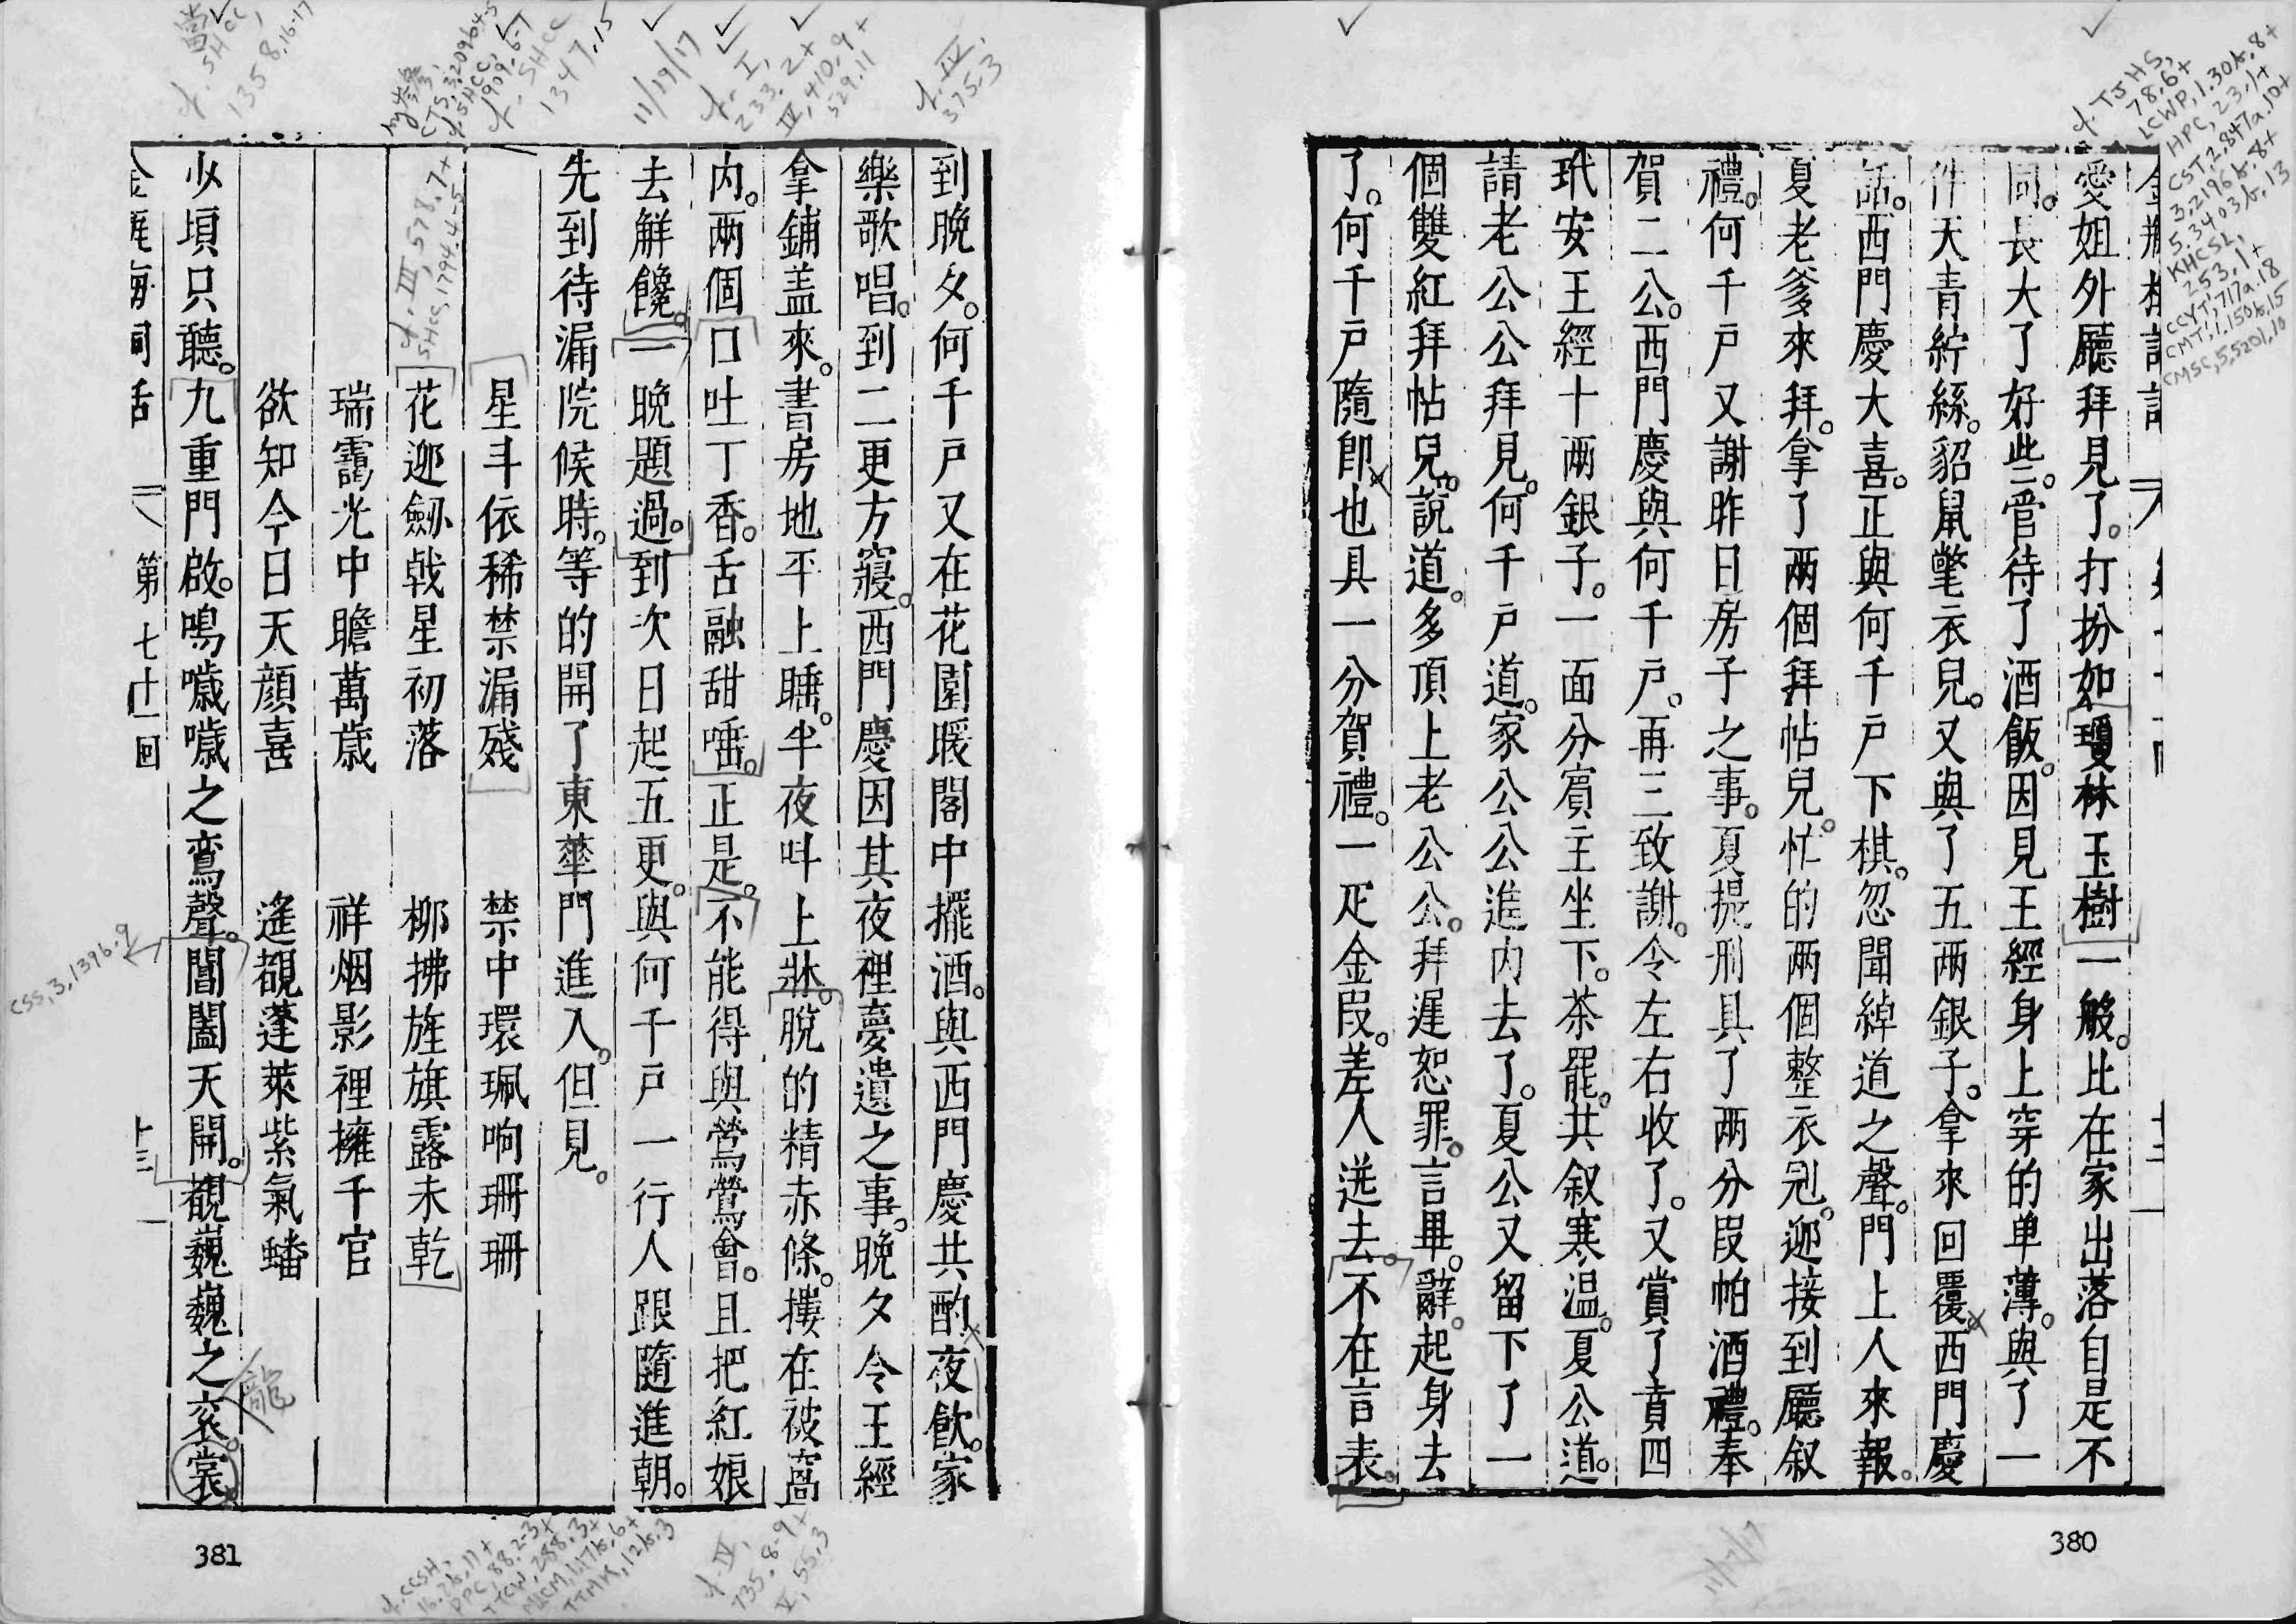 愛姐外廳拜見了。打扮如瓊林玉樹一般。比在家出落自是不
同。長大了好些。管待了酒飯。因見王經身上穿的单薄。與了一
件天青紵絲。貂鼠氅衣兒。又與了五兩銀子。拿來回覆西門慶
話。西門慶大喜。正與何千戸下棋。忽聞綽道之聲。門上人來報。
夏老爹來拜。拿了兩個拜帖兒。忙的兩個整衣冠。迎接到廳叙
禮。何千戸又謝昨日房子之事。夏提刑具了兩分段帕酒禮。奉
賀二公。西門慶與何千戸。再三致謝。令左右收了。又賞了賁四
玳安王經十兩銀子。一面分賓主坐下。茶罷。共叙寒温。夏公道。
請老公公拜見。何千戸道。家公公進内去了。夏公又留下了一
個雙紅拜帖兒。說道。多頂上老公公。拜遲恕罪。言畢。辭。起身去
了。何千戸隨即也具一分賀禮。一疋金段。差人送去。不在言表。
380
到晚夕。何千戸又在花園暖閣中擺酒。與西門慶共酌夜飲。家
樂歌唱。到二更方寢。西門慶因其夜裡夢遺之事。晚夕令王經
拿鋪盖來。書房地平上睡。半夜呌上牀。脫的精赤條。摟在被窩
内。兩個口吐丁香。舌融甜唾。正是。不能得與鶯鶯會。且把紅娘
去解饞。一晚題過。到次日起五更。與何千戸一行人跟隨進朝。
先到待漏院候時。等的開了東華門進入。但見。
星斗依稀禁漏殘 禁中環珮响珊珊
花迎劔戟星初落 柳拂旌旗露未乾
瑞靄光中瞻萬歲 祥烟影裡擁千官
欲知今日天顔喜 遙覩蓬萊紫氣蟠
少頃只聽。九重門啟。鳴噦噦之鸞聲。閶闔天開。覩巍巍之衮。裳
第七十一回
381
龍
CSS,3,1396.9
11/19/17